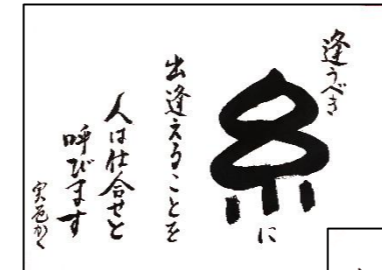 逢うべき
糸に
出逢えることを
人は仕合せと
呼びます